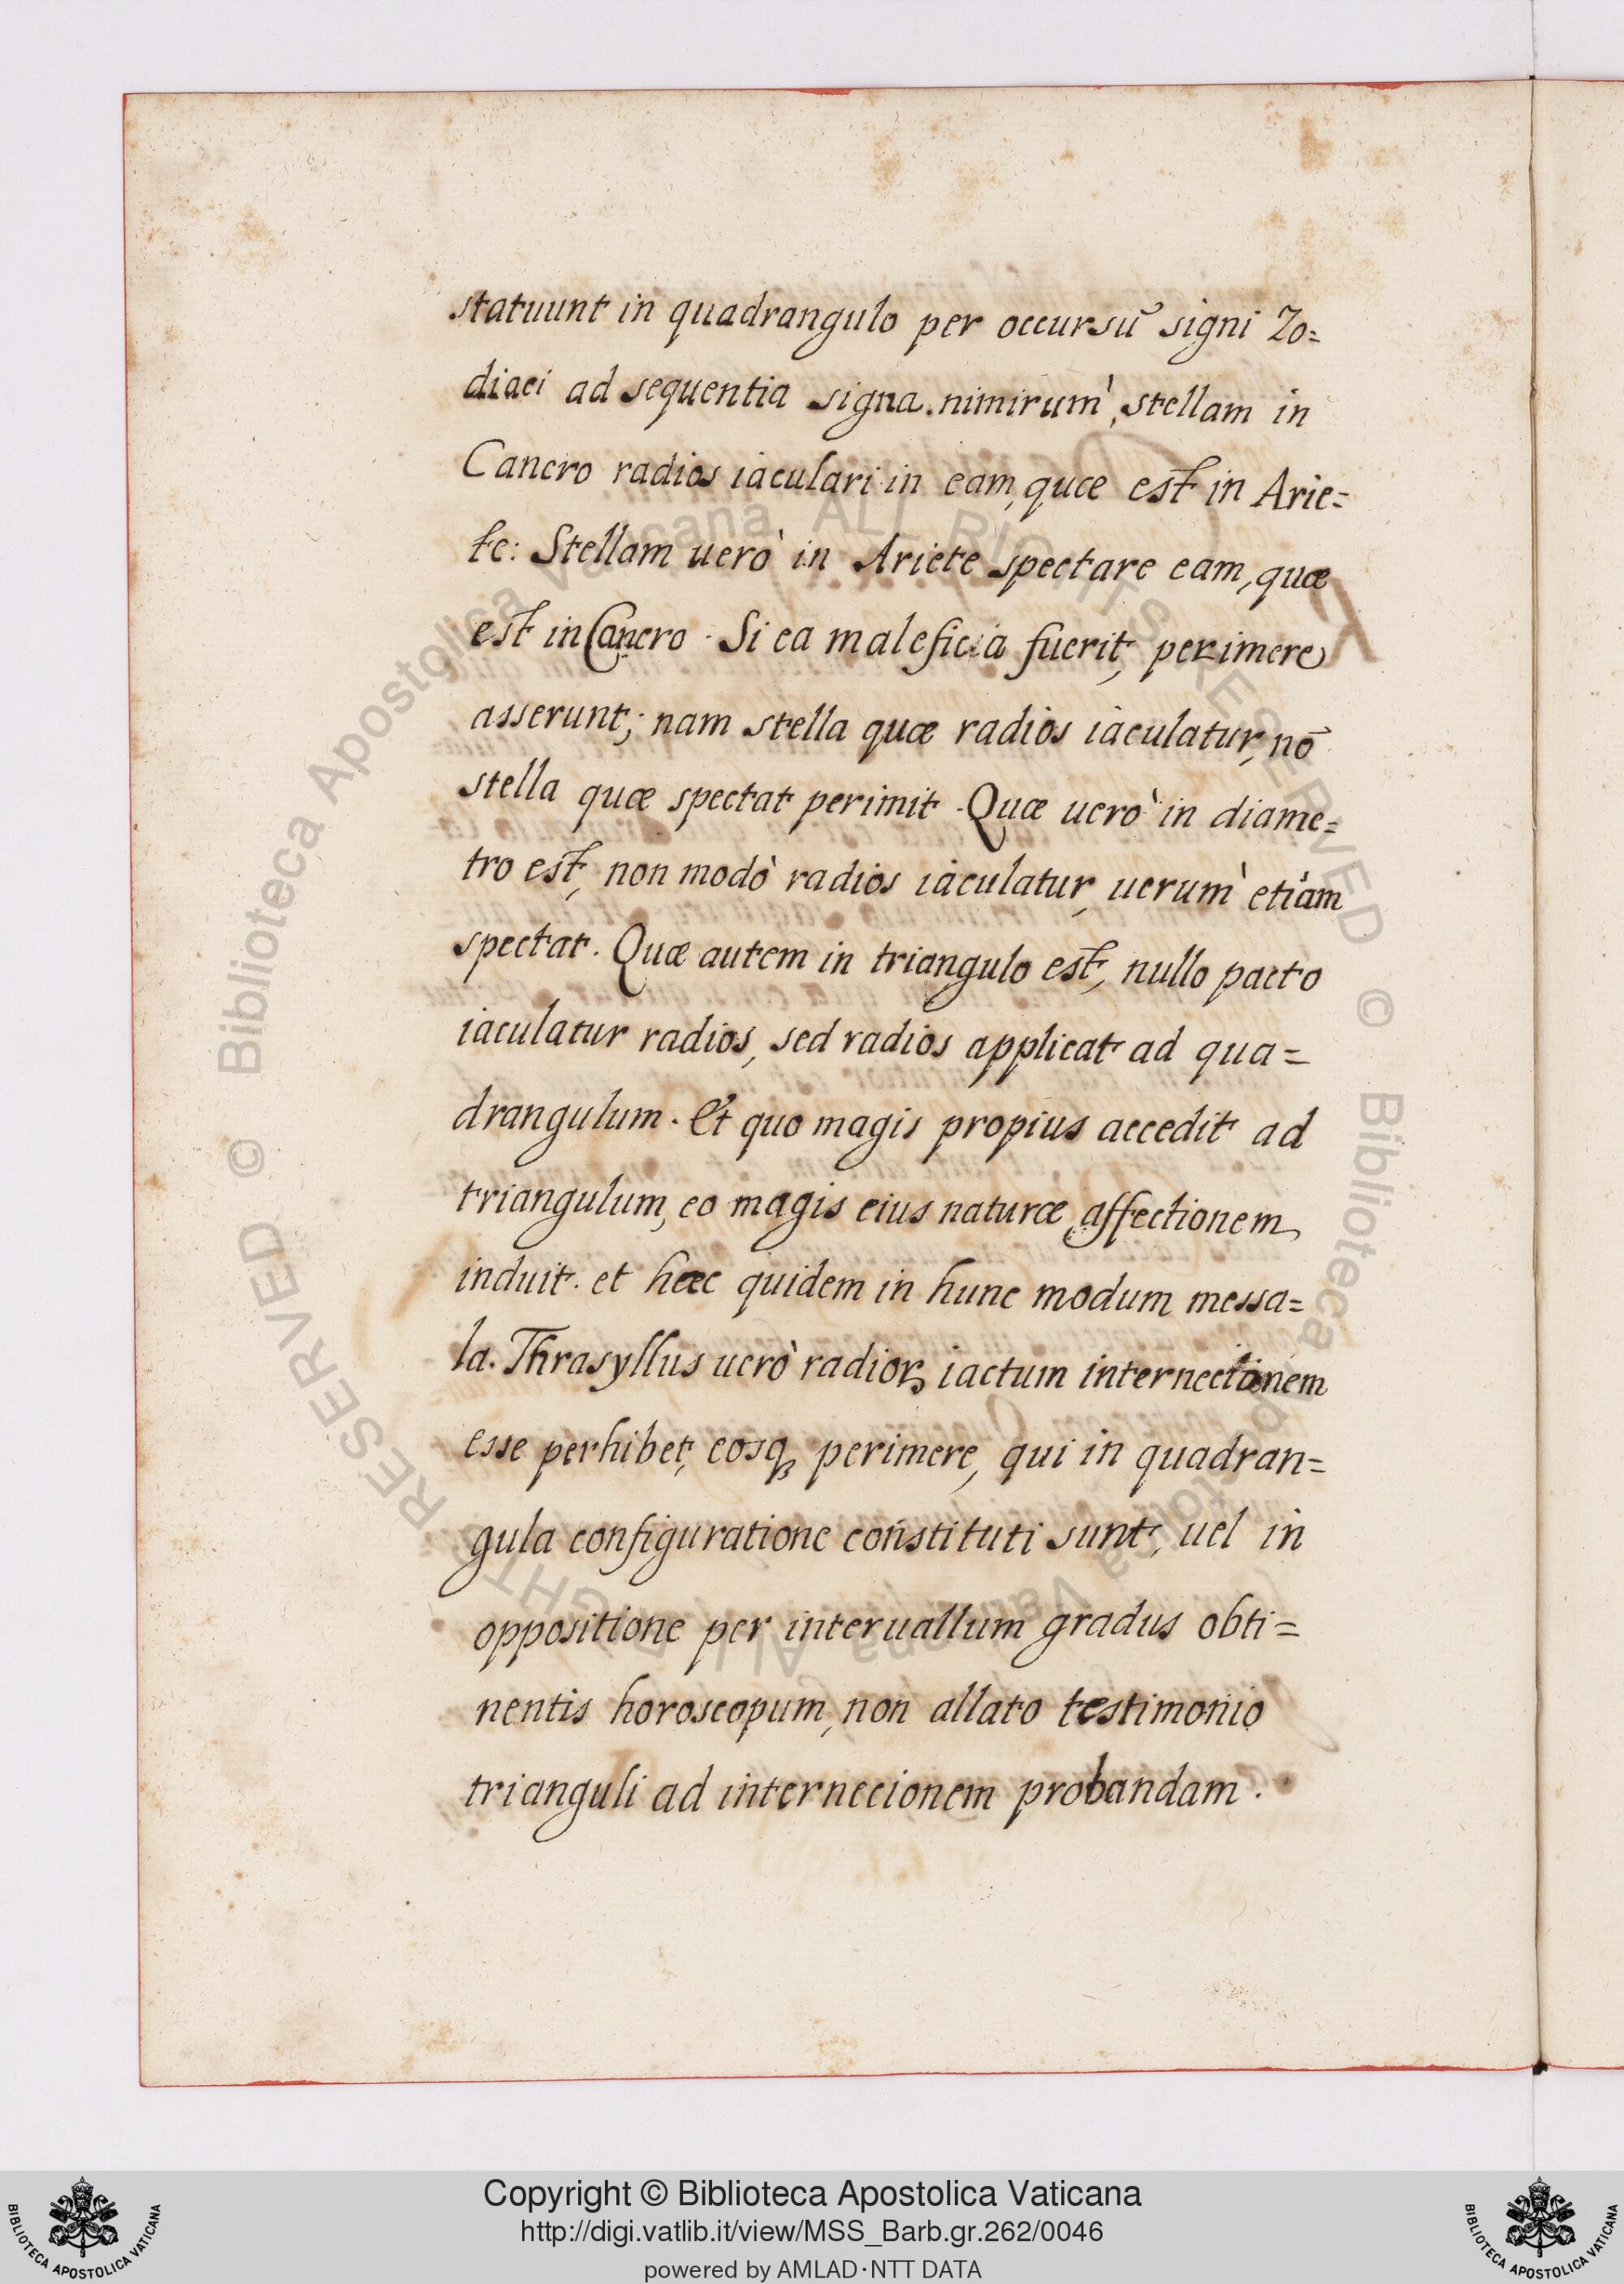 statuunt in quadrangulo per occursũ signi Zo=
diaci ad sequentia signa. nimirum̀, stellam in
Cancro radios iaculari in eam, quæ est in Arie=
te: Stellam uerò in Ariete spectare eam, quæ
est in Cancro. Si ea maleficia fuerit, perimere
asserunt; nam stella quæ radios iaculatur, nõ
stella quæ spectat perimit. Quæ uerò in diame=
tro est, non modò radios iaculatur, uerum̀ etiam
spectat. Quæ autem in triangulo est, nullo pacto
iaculatur radios, sed radios applicat ad qua=
drangulum. Et quo magis propius accedit ad
triangulum, eo magis eius naturæ affectionem
induit. et hæc quidem in hunc modum messa=
la. Thrasyllus uerò radioꝝ iactum internecionem
esse perhibet, eosqꝫ perimere, qui in quadran=
gula configuratione constituti sunt, uel in
oppositione per interuallum gradus obti=
nentis horoscopum, non allato testimonio
trianguli ad internecionem probandam.
© Biblioteca Apostolica Vaticana ALL RIGHTS RESERVED
© Biblioteca Apostolica Vaticana ALL RIGHTS RESERVED
Copyright © Biblioteca Apostolica Vaticana
http://digi.vatlib.it/view/MSS_Barb.gr.262/0046
powered by AMLAD·NTT DATA
BIBLIOTECA APOSTOLICA VATICANA
BIBLIOTECA APOSTOLICA VATICANA